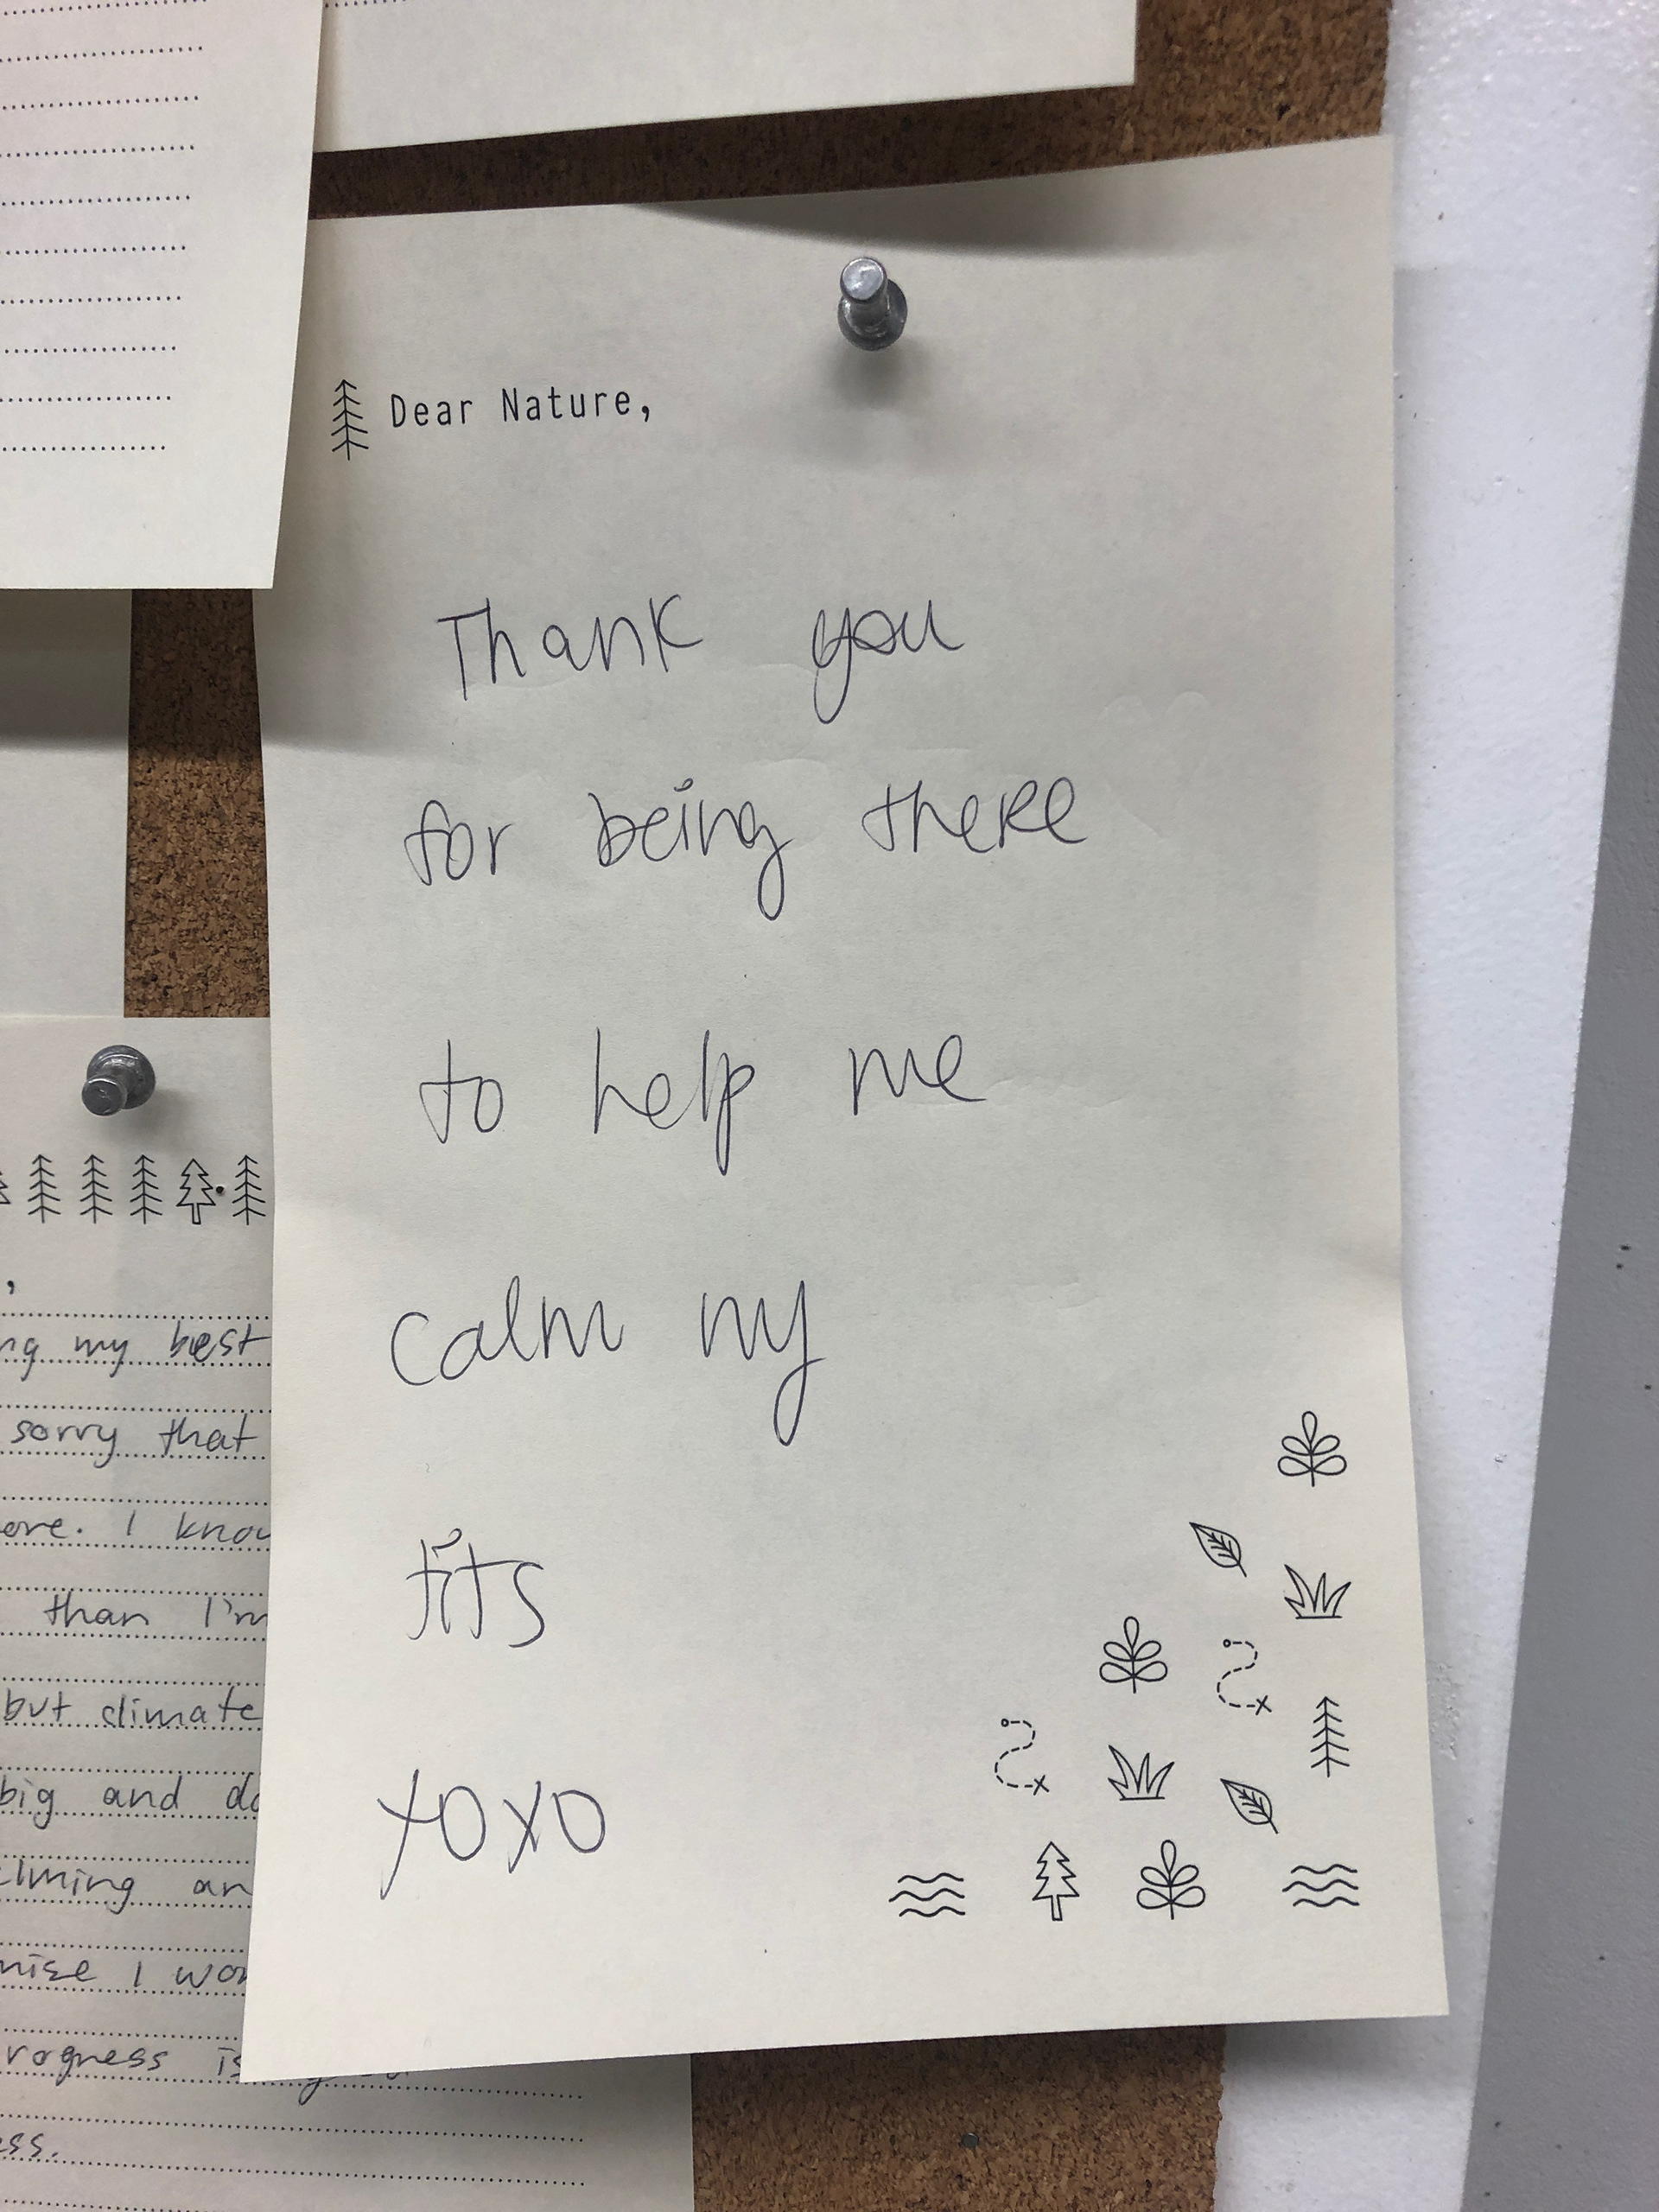 Dear Nature,
Thank you
for being there
to help me
calm my
tits
xoxo
,
ng my best
sorry that
ore. I know
than I'm
but climate
big and do
elming an
mise I wor
rogness is
ess.